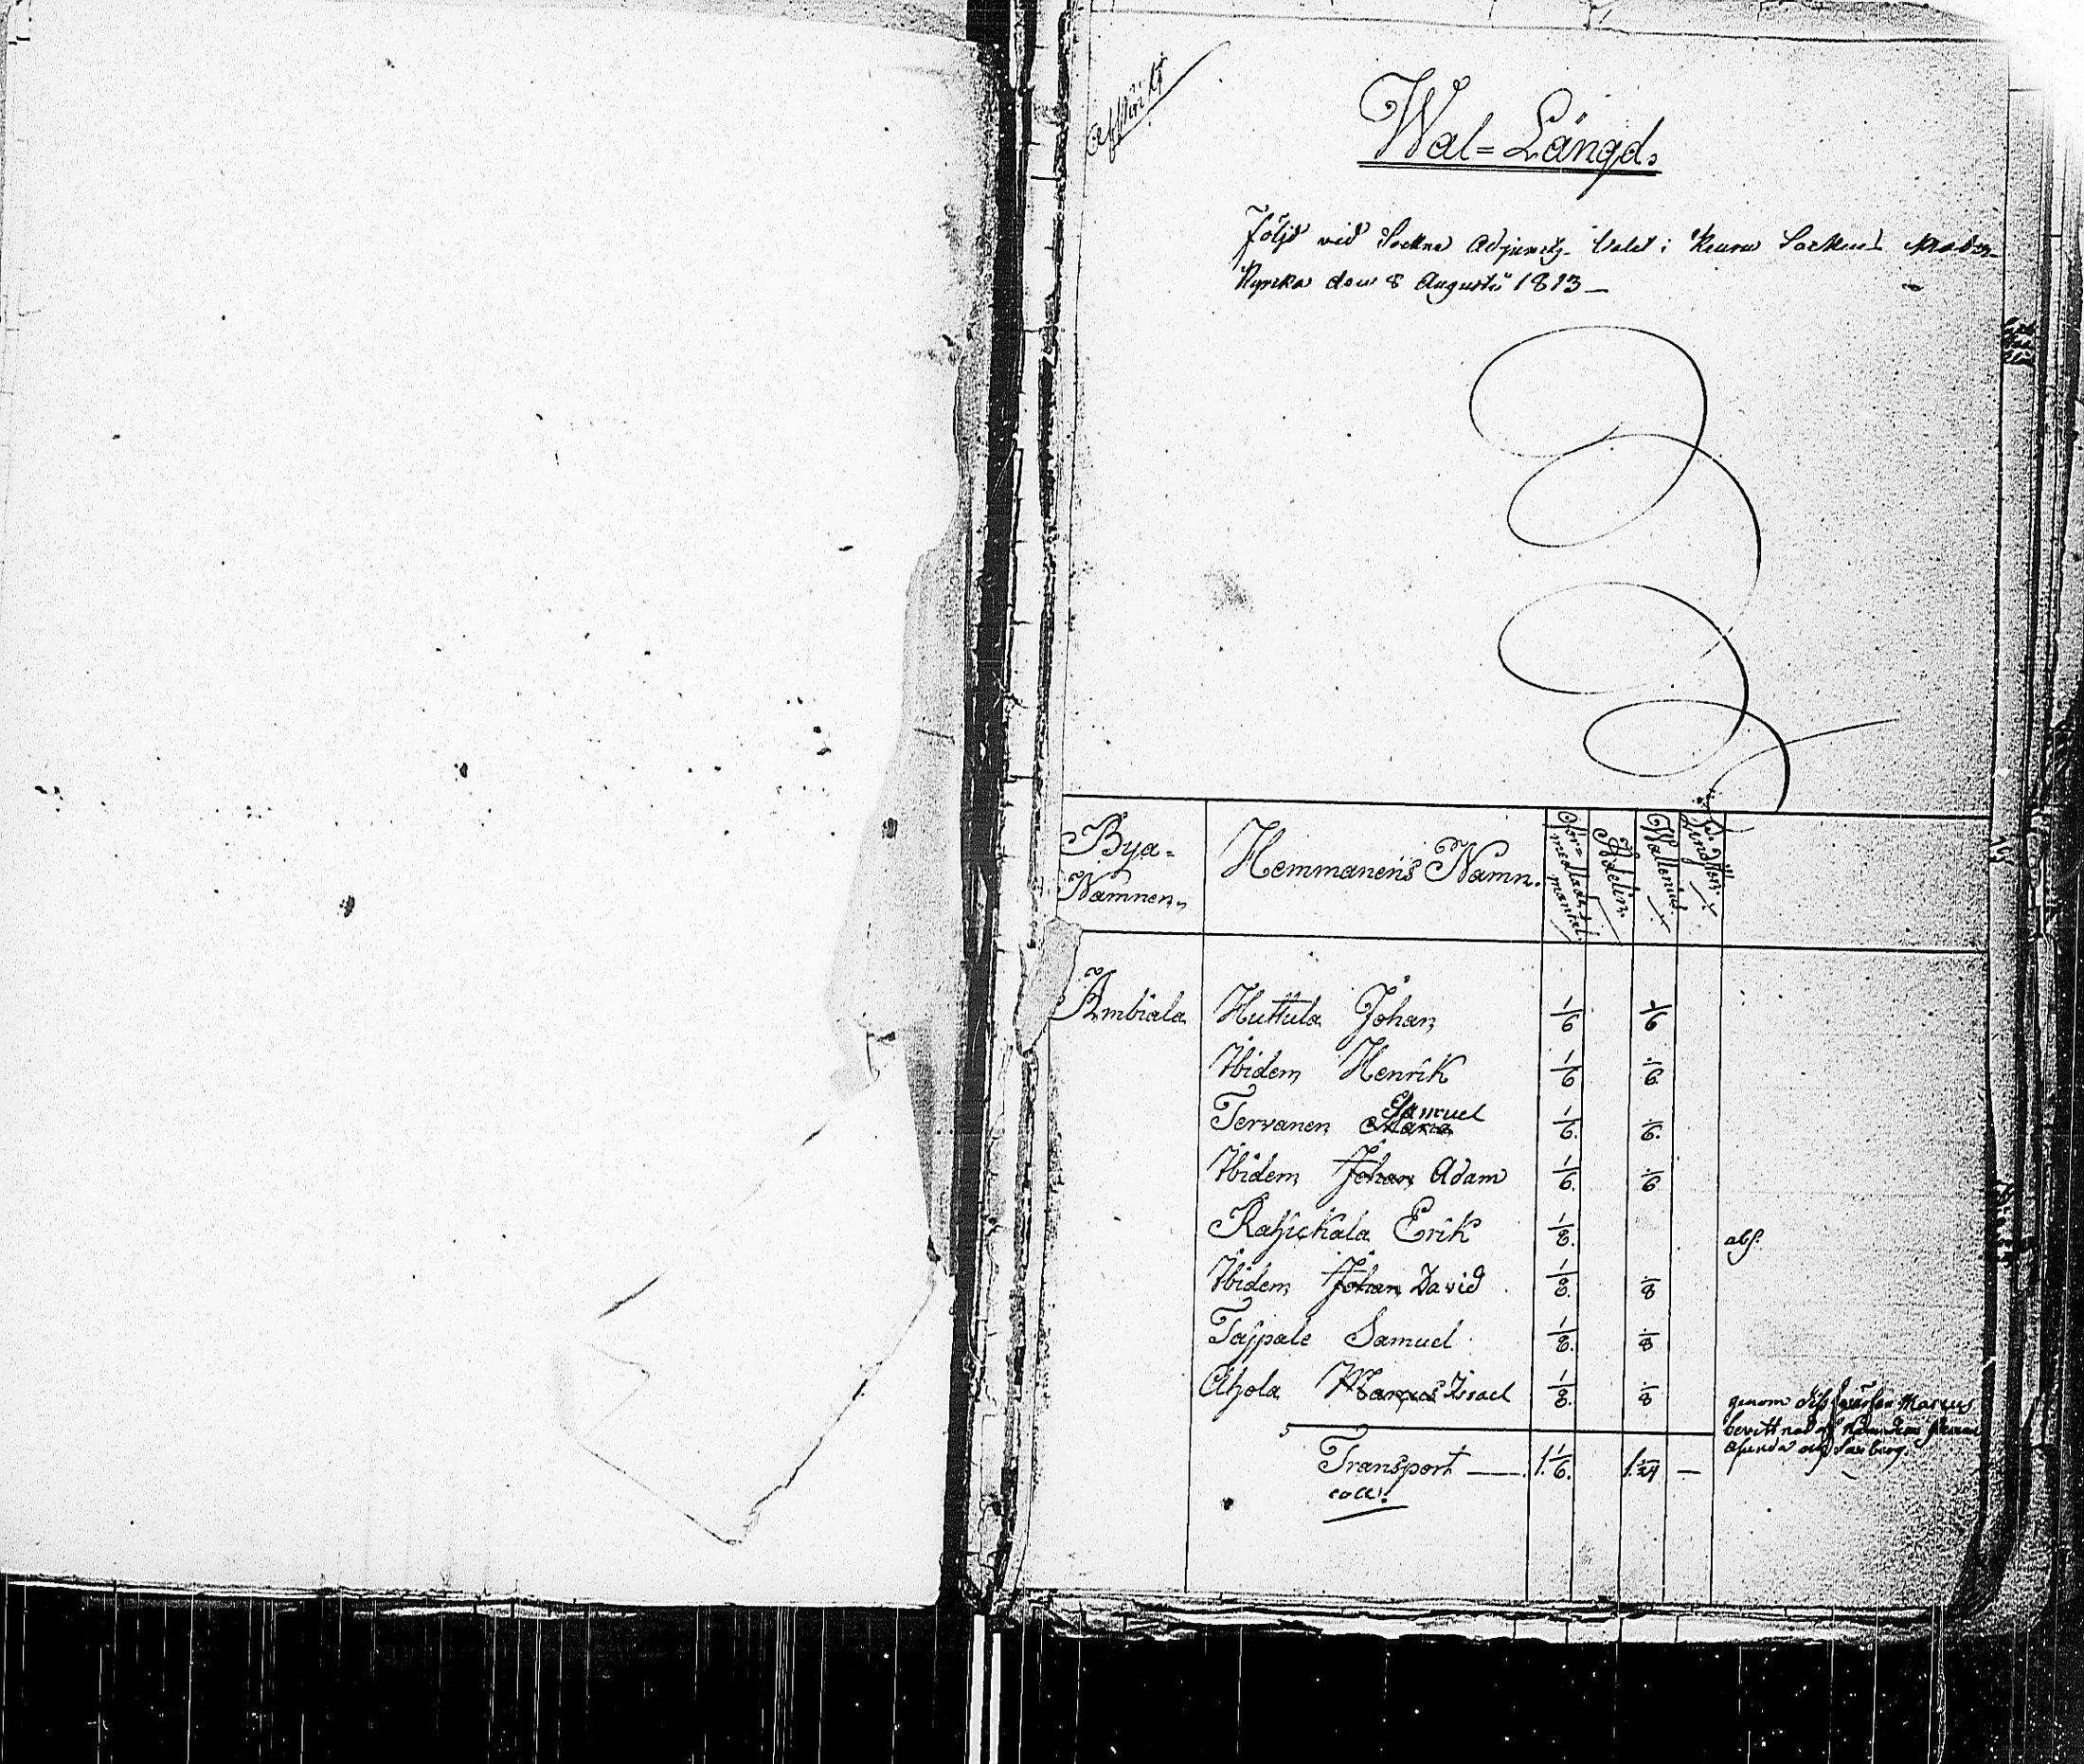 Afskrift
Wal=Längd.
Följd vid Sockne Adjuncts Valet i Keuru Sockens Moder-
Kyrka den 8 Augusti 1813
Bya= Hemmanens Namn. Förmedladt mantel. Wallenius
Namnen.
Ambiala Huttula Johan 1/6 1/6
Ibidem Henrik 1/6 1/6
Samuel
Tervanen Maria 1/6 1/6
Ibidem Johan Adam 1/6 1/6
Rahickala Erik 1/8 abs.
Ibidem Johan David 1/8 1/8
Taipale Samuel 1/8 1/8
Ahola Marcus Israel 1/8 1/8
genom Marcus
bevittnad af
och
Transport — 1.1/6. 1.1/24 —
coll: